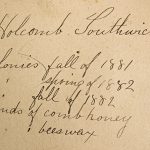 Holcomb. Southwic
lonies fall of 1881
" spring of 1882
" fall of 1882
nds of comb honey
" beeswax